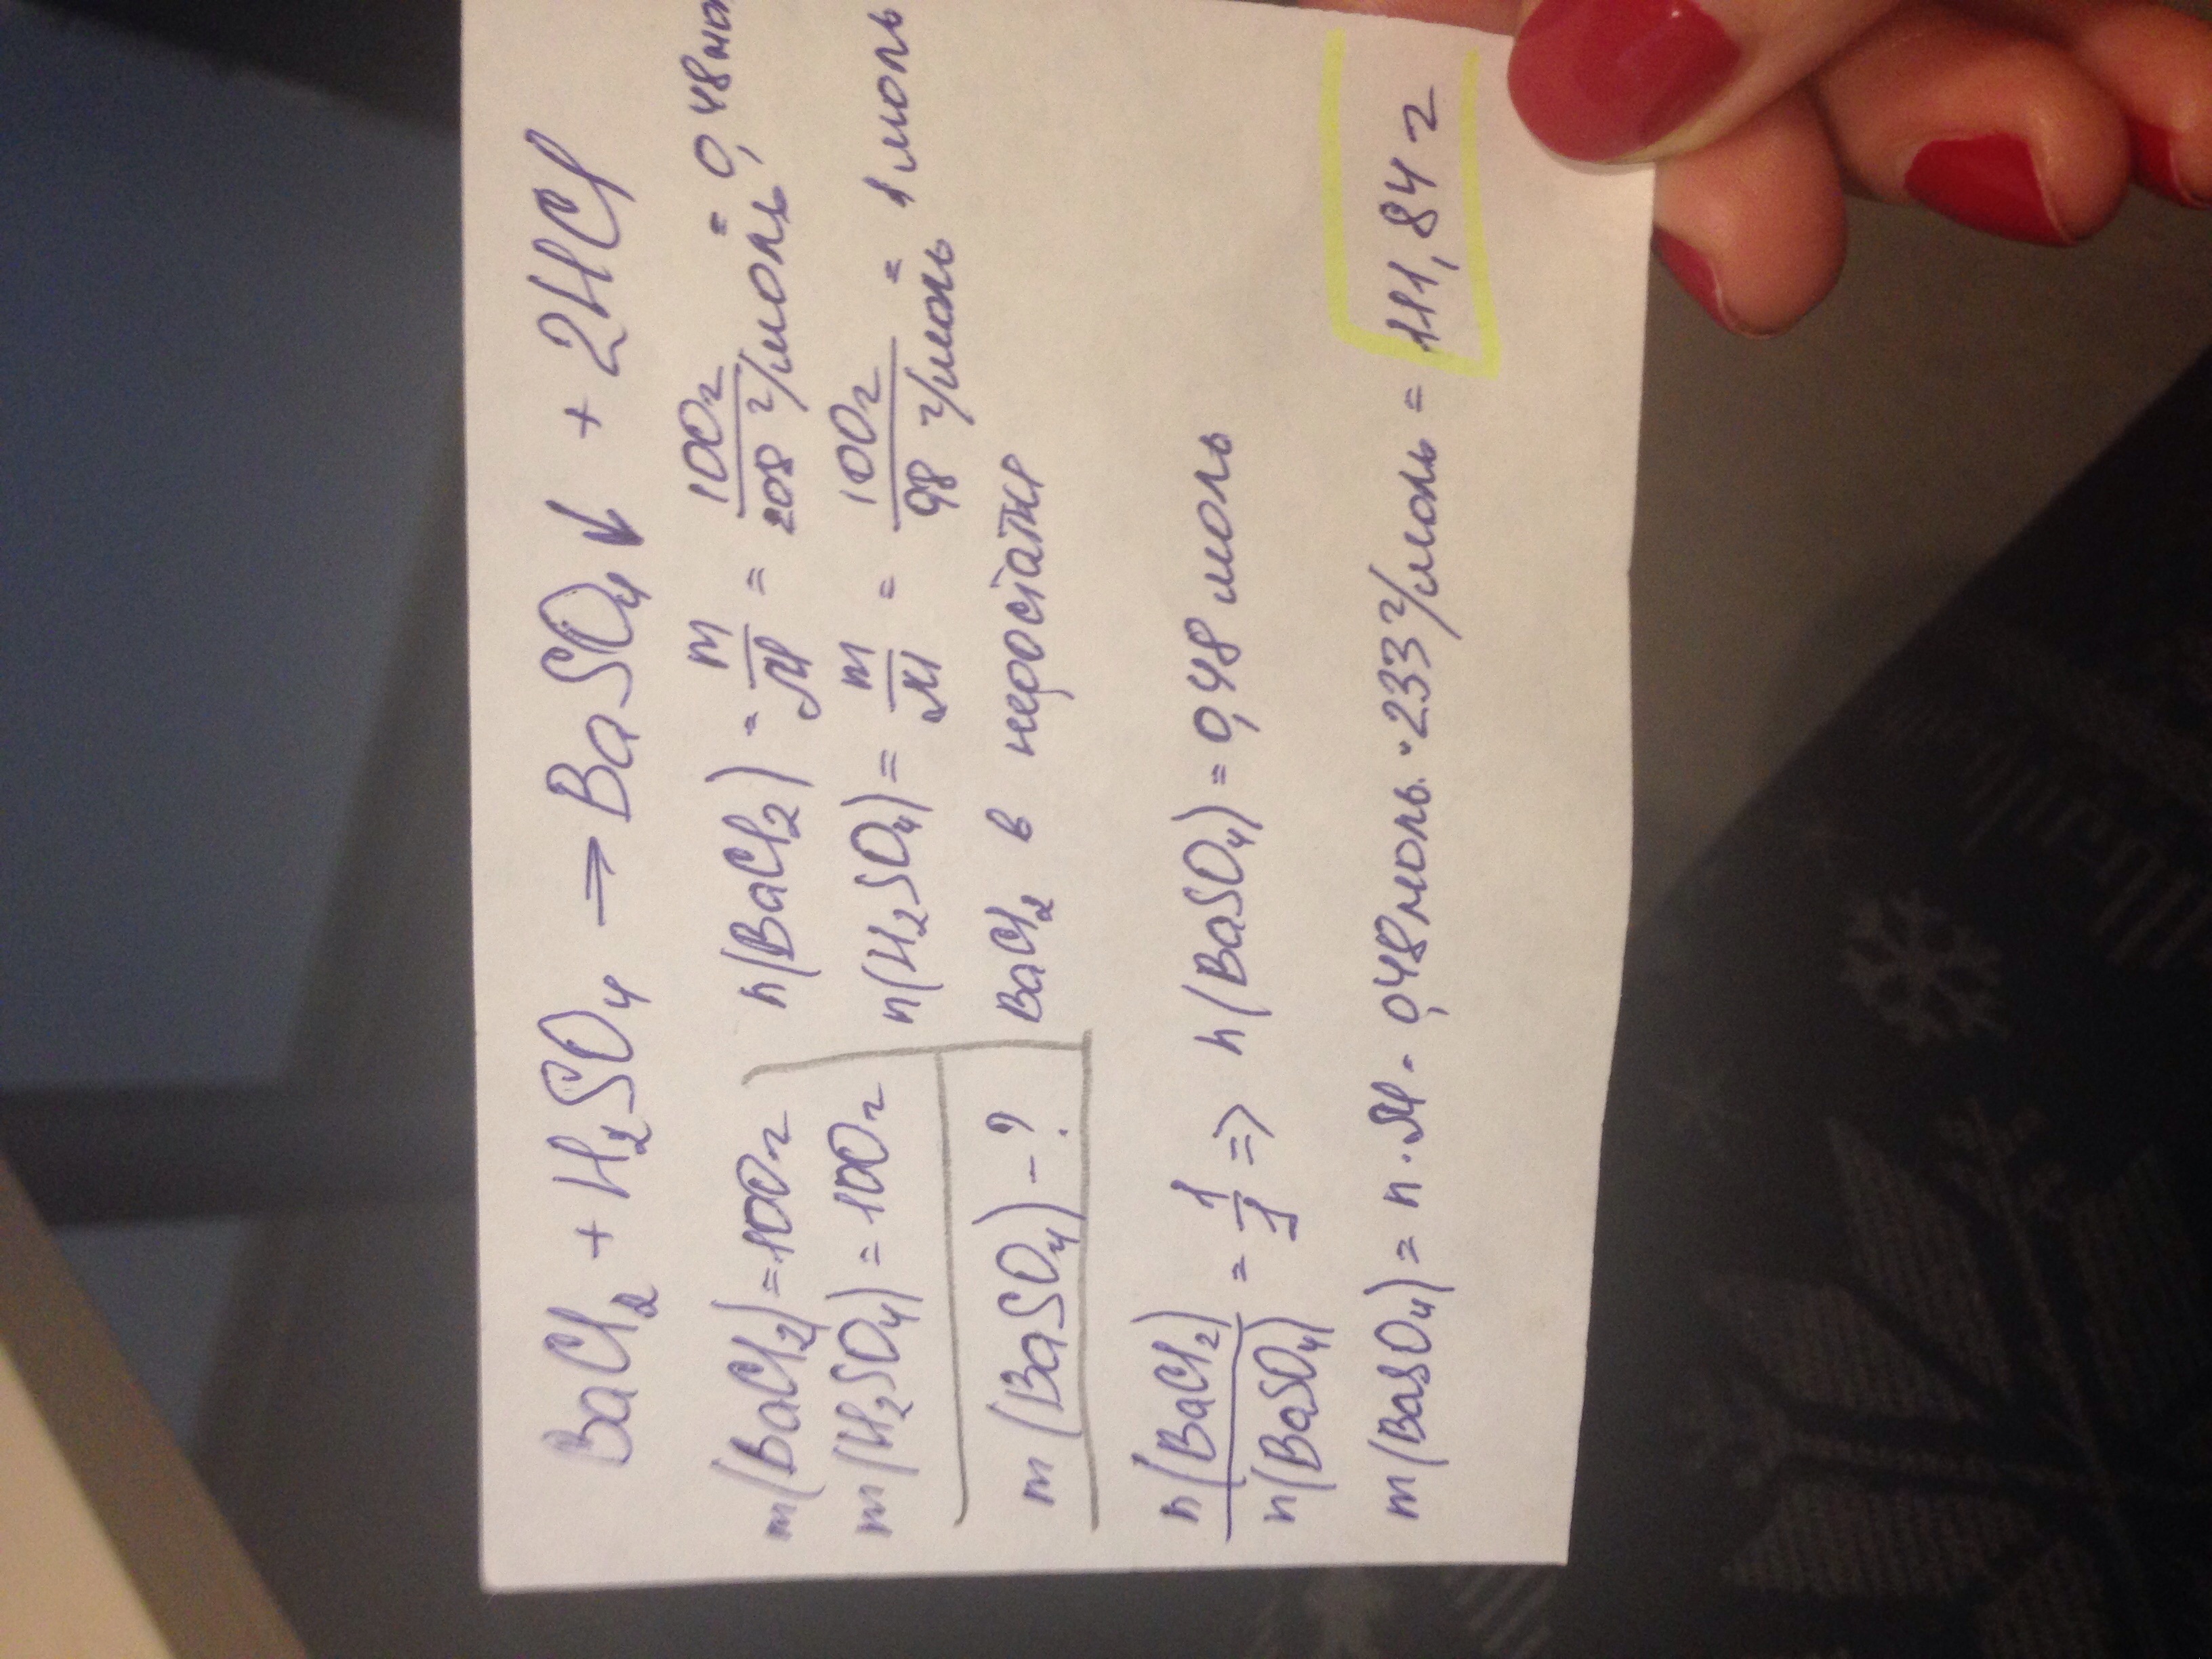 BaCl₂ + H₂SO₄ → BaSO₄↓ + 2HCl
m(BaCl₂) = 100г
n(BaCl₂) = m/M = 100г/208 г/моль = 0,48мо
m(H₂SO₄) = 100г
n(H₂SO₄) = m/M = 100г/98 г/моль = 1 моль
m(BaSO₄) - ?
BaCl₂ в недостатке
n(BaCl₂)/n(BaSO₄) = 1/1 => n(BaSO₄) = 0,48 моль
m(BaSO₄) = n · M = 0,48моль · 233 г/моль = 111,84 г